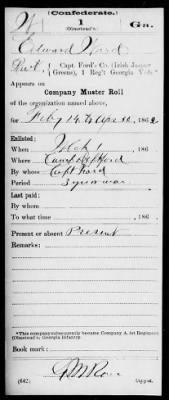 W (Confederate.) Ga.
1
(Olmstead's).
Edward Ward
Pvt., Capt. Ford's Co. (Irish Jasper Greens), 1 Reg't Georgia Vols.*
Appears on
Company Muster Roll
of the organization named above,
for Feby 14 to Apr 30, 1862
Enlisted:
When 186
Where
By whom Capt Ford
Period 3 yrs or war
Last paid:
By whom
To what time 186
Present or absent Present
Remarks:
*This company subsequently became Company A, 1st Regiment (Olmstead's) Georgia Infantry.
Book mark:
(642) Copyist.